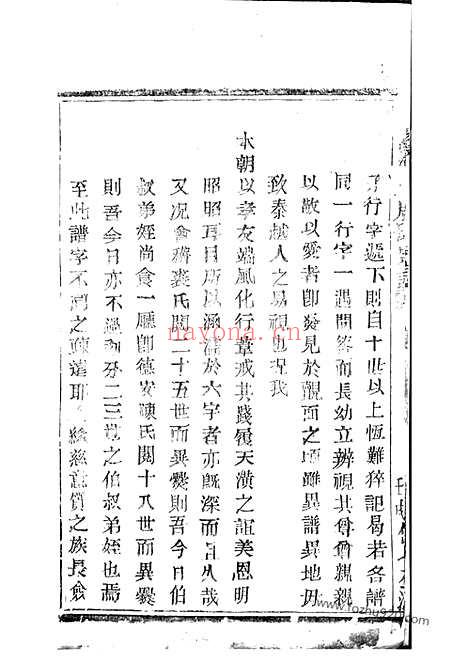 行字遞下則自十世以上恆難猝記曷若各譜
同一行字一遇問答而長幼立辨視其尊尊親親
以敬以愛者卽發見於覿面之頃雖異譜異地毋
致秦越人之易視也況我
本朝以孝友端風化行葦戒其踐履天潢之誼美恩明
昭昭耳目所以涵濡於六字者亦旣深而且久哉
又况會稽裘氏閱二十五世而異爨則吾今日伯
叔弟姪尚食一廳卽德安陳氏閱十八世而異爨
則吾今日亦不過二三世之伯叔弟姪也焉
至此譜字不同之疎遠耶爰質之族長僉
nayona.cn
www.fozhu920.com